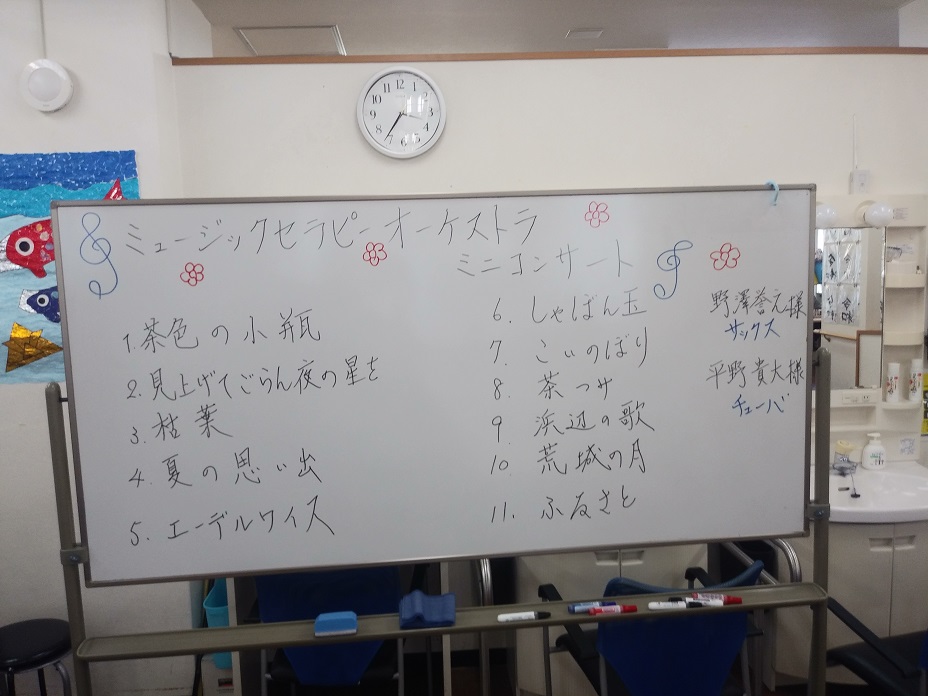 ミュージックセラピーオーケストラ
ミニコンサート
1. 茶色の小瓶
2. 見上げてごらん夜の星を
3. 枯葉
4. 夏の思い出
5. エーデルワイス
6. しゃぼん玉
7. こいのぼり
8. 茶つみ
9. 浜辺の歌
10. 荒城の月
11. ふるさと
野澤誉元様
サックス
平野貴大様
チューバ
12
1
2
3
4
5
6
7
8
9
10
11